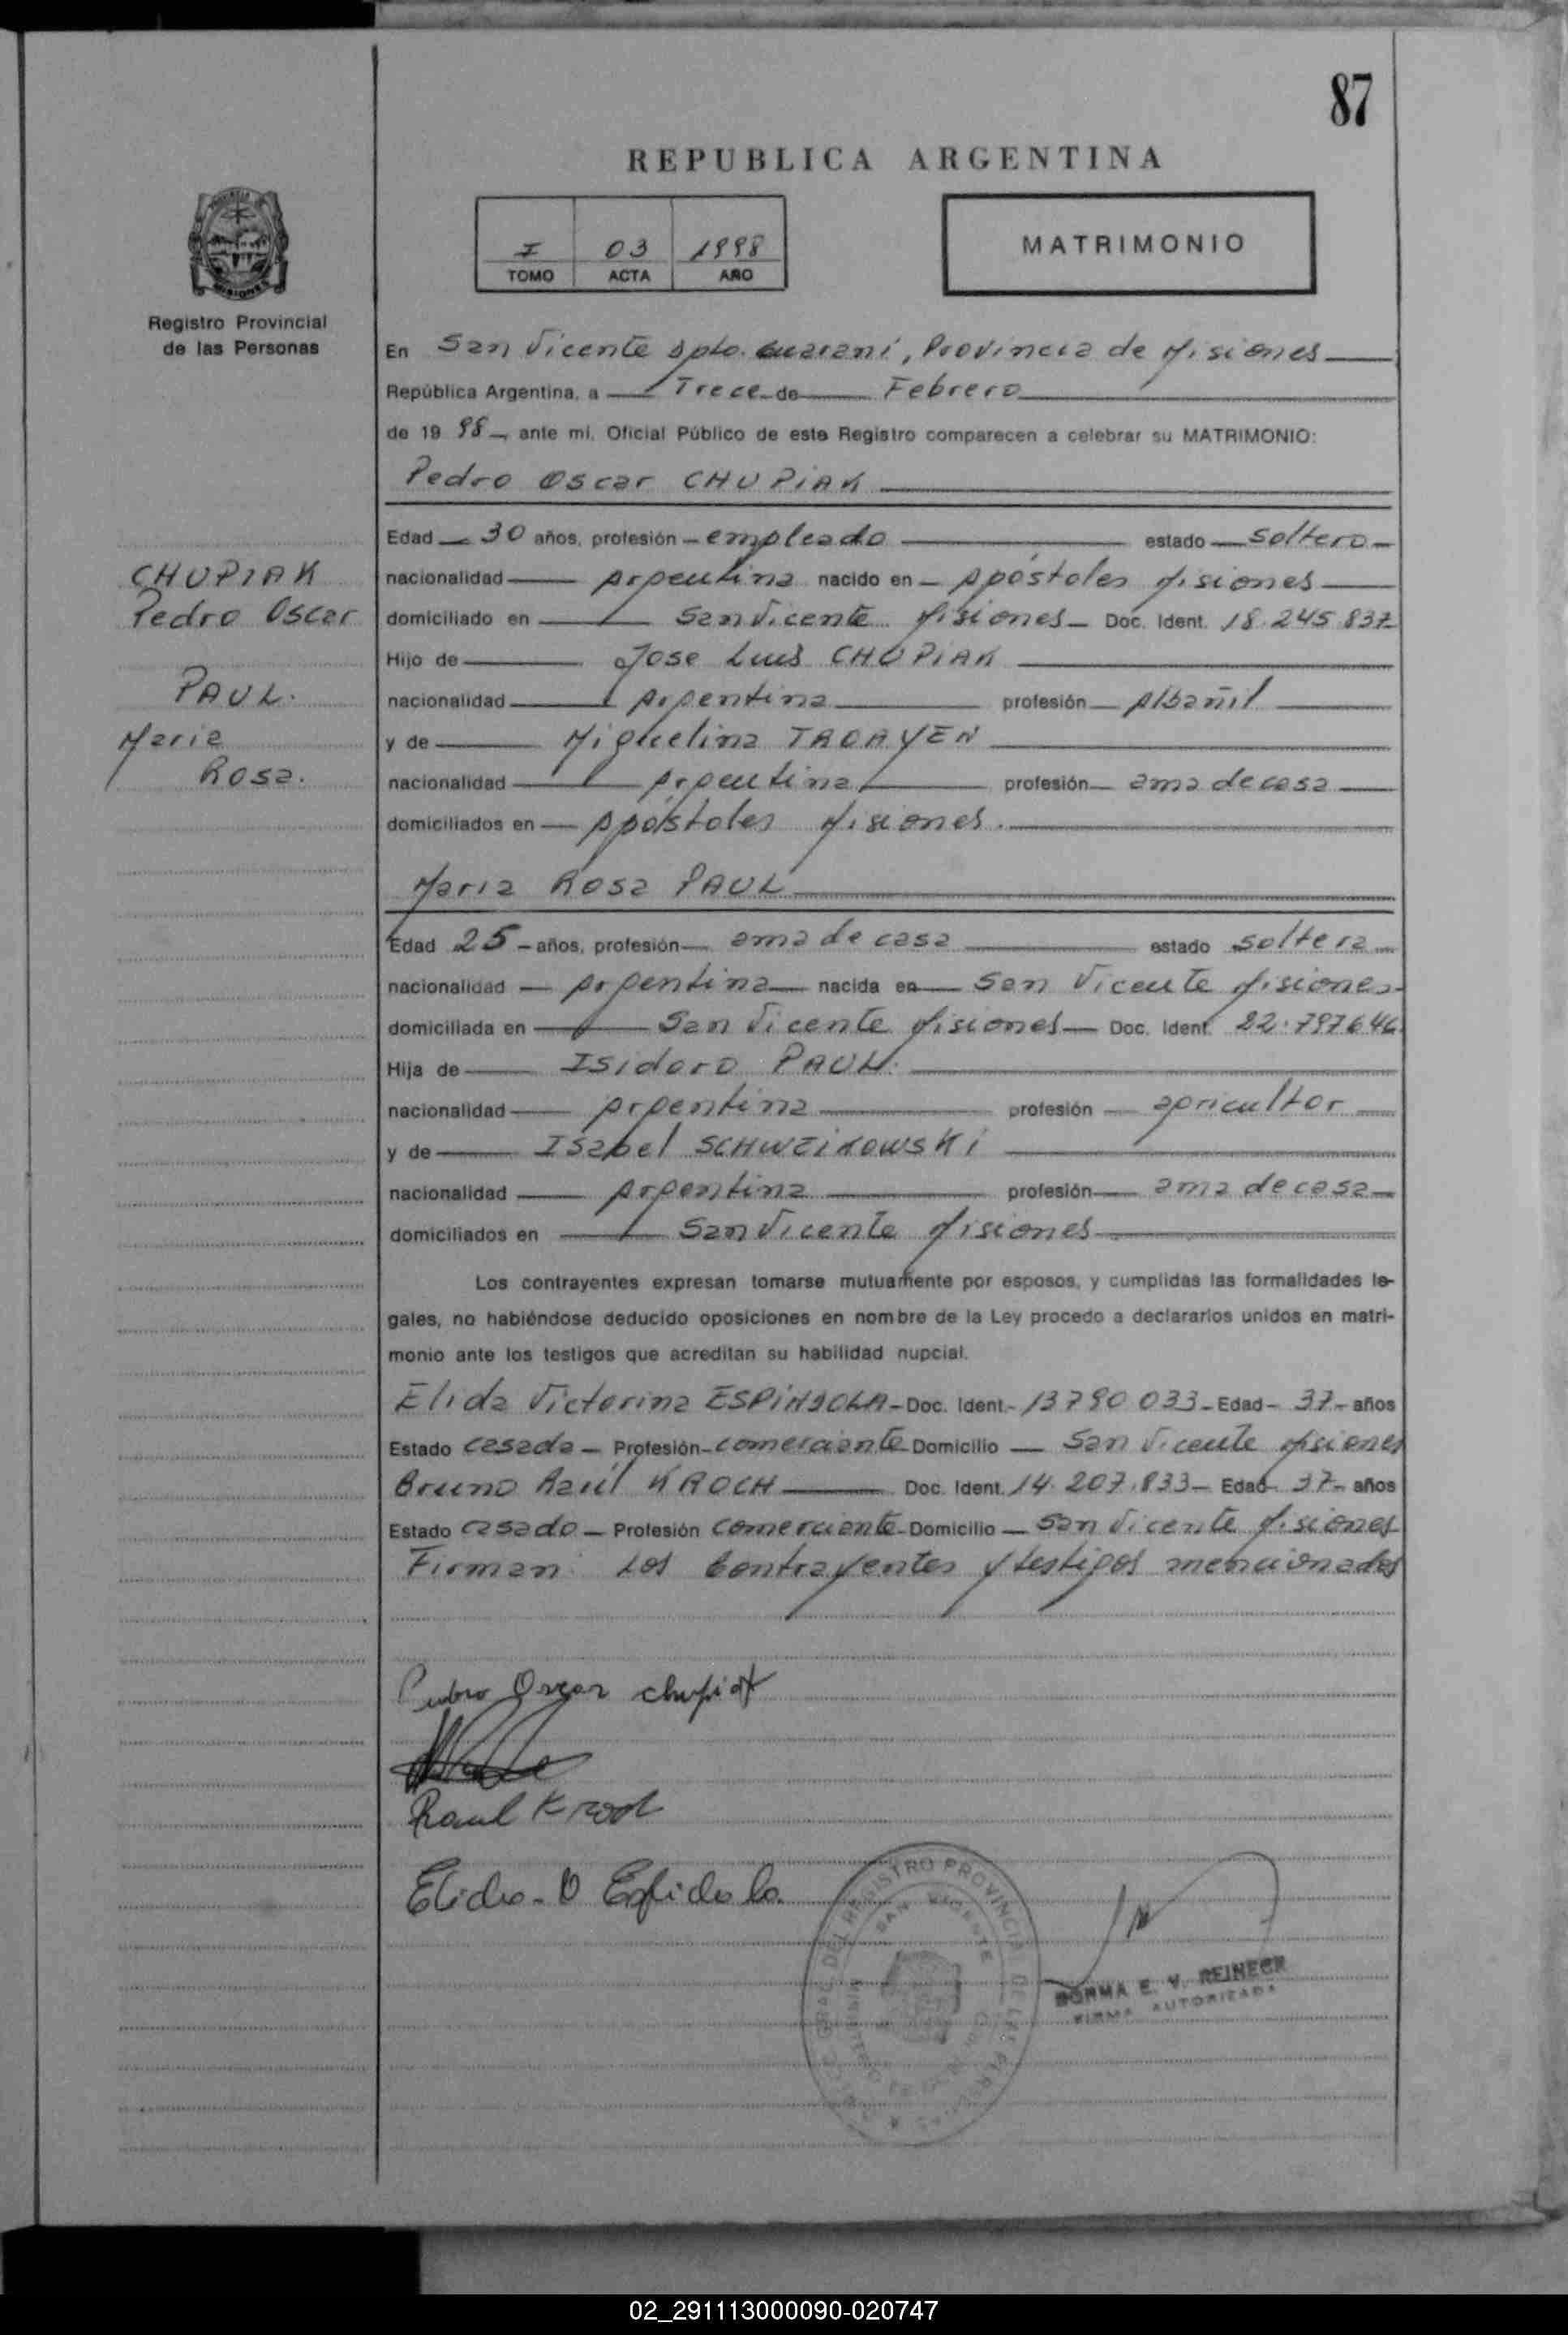 87
REPUBLICA ARGENTINA
I 03 1998
TOMO ACTA AÑO
MATRIMONIO
Registro Provincial
de las Personas
En San Vicente Dpto. Guaraní, Provincia de Misiones
República Argentina, a Trece de Febrero
de 19 98 ante mí, Oficial Público de este Registro comparecen a celebrar su MATRIMONIO:
Pedro Oscar CHUPIAK
Edad 30 años, profesión empleado estado soltero
nacionalidad Argentina nacido en Apóstoles Misiones
domiciliado en San Vicente Misiones Doc. Ident. 18.245.837
Hijo de Jose Luis CHUPIAK
nacionalidad Argentina profesión Albañil
y de Miguelina
nacionalidad Argentina profesión ama de casa
domiciliados en Apóstoles Misiones.
CHUPIAK
Pedro Oscar
PAUL.
Maria
Rosa.
Maria Rosa PAUL
Edad 25 años, profesión ama de casa estado soltera
nacionalidad Argentina nacida en San Vicente Misiones
domiciliada en San Vicente Misiones Doc. Ident. 22.797646
Hija de Isidoro PAUL.
nacionalidad Argentina profesión agricultor
y de Isabel SCHWEIKOWSKI
nacionalidad Argentina profesión ama de casa
domiciliados en San Vicente Misiones
Los contrayentes expresan tomarse mutuamente por esposos, y cumplidas las formalidades le-
gales, no habiéndose deducido oposiciones en nombre de la Ley procedo a declararlos unidos en matri-
monio ante los testigos que acreditan su habilidad nupcial.
Elida Victorina ESPINDOLA Doc. Ident. 13790033 Edad 37 años
Estado casada Profesión comerciante Domicilio San Vicente Misiones
Bruno Raúl KROCH Doc. Ident. 14.207.833 Edad 37 años
Estado casado Profesión comerciante Domicilio San Vicente Misiones
Firman: Los Contrayentes y testigos mencionados
Pedro Oscar Chupiak
Raul Kroch
Elida V Espindola
REGISTRO PROVINCIAL DE LAS PERSONAS
SAN VICENTE
NORMA E. V. REINECK
FIRMA AUTORIZADA
02_291113000090-020747